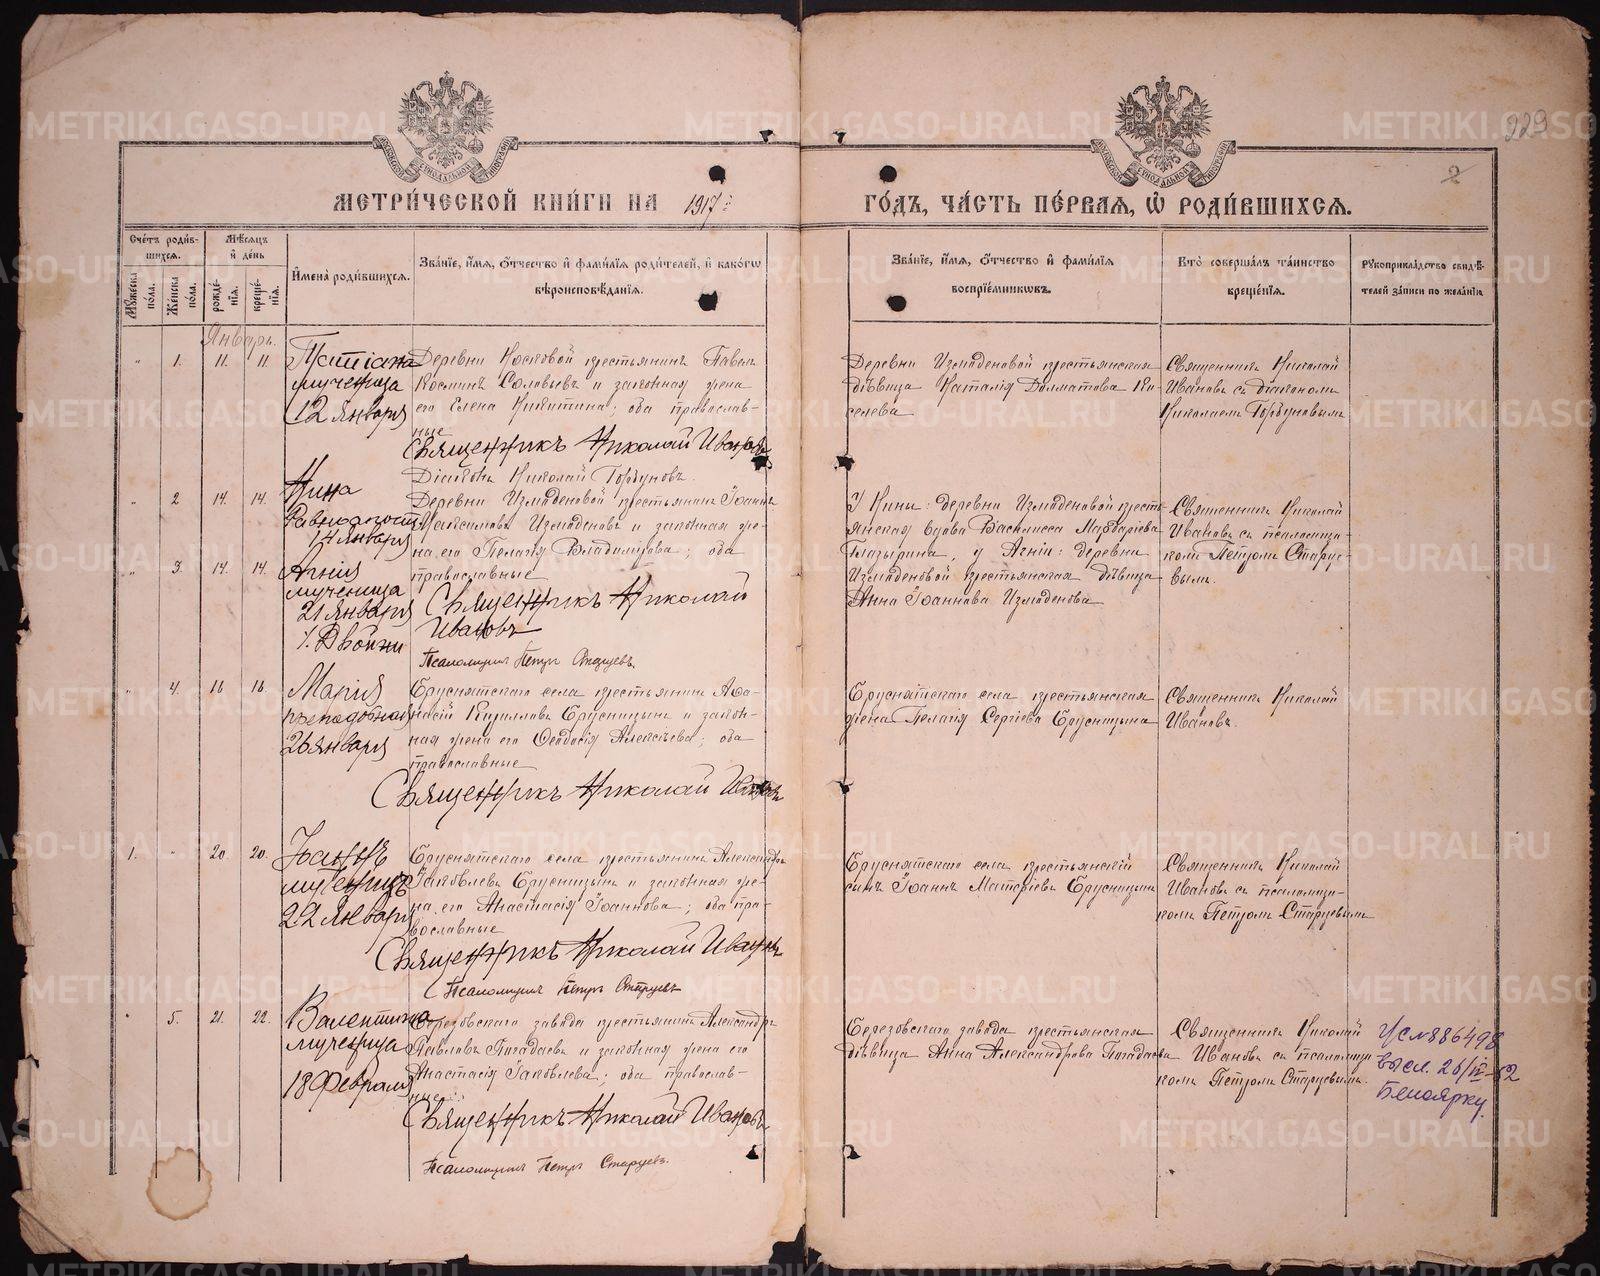 229
2
МОСКОВСКОЙ СѴНОДАЛЬНОЙ ТИПОГРАФІИ
МОСКОВСКОЙ СѴНОДАЛЬНОЙ ТИПОГРАФІИ
МЕТРИ́ЧЕСКОЙ КНИ́ГИ НА 1917 ГО́ДЪ, ЧА́СТЬ ПЕ́РВАЯ, Ѽ РОДИ́ВШИХСЯ.
Сче́тъ роди́вшихся.
Мѣ́сяцъ и҆ де́нь
Мꙋ́жеска по́ла.
Же́нска по́ла.
рожде́нїя.
креще́нїя.
И҆мена̀ роди́вшихся.
Зва́нїе, и҆́мя, ѻ҆́тчество и҆ фами́лїя роди́телей, и҆ како́гѡ вѣроисповѣ́данїя.
Зва́нїе, и҆́мя, ѻ҆́тчество и҆ фами́лїя воспрїе́мникѡвъ.
Кто̀ соверша́лъ та́инство креще́нїя.
Рꙋкоприкла́дство свидѣ́телей за́писи по жела́нїю
Январь.
" 1. 11. 11.
Татіана
мученица
12 января
Деревни Носковой крестьянинъ Павелъ
Космин Соловьевъ и законная жена
его Елена Никитина; оба православ-
ные
Священникъ Николай Ивановъ
Діаконъ Николай Горбуновъ.
Деревни Измоденовой крестьянская
дѣвица Наталія Долматова Ки-
селева
Священникъ Николай
Ивановъ съ діакономъ
Николаемъ Горбуновымъ
" 2 14. 14.
Нина
Равноапост.
14 января
" 3 14. 14.
Агнія
мученица
21 января
Двойни
Деревни Измоденовой крестьянинъ Іоаннъ
Максимовъ Измоденовъ и законная же-
на его Пелагія Владимірова; оба
православные
Священникъ Николай
Ивановъ
Псаломщикъ Петръ Старцевъ.
У Нины: деревни Измоденовой кресть-
янская вдова Василисса
Глазырина, у Агніи: деревни
Измоденовой крестьянская дѣвица
Анна Іоаннова Измоденова
Священникъ Николай
Ивановъ съ псаломщи-
комъ Петромъ Старце-
вымъ.
" 4. 16. 16.
Марія
преподобная
26 января
Бруснятскаго села крестьянинъ Аѳа-
насій Кирилловъ Брусницынъ и закон-
ная жена его Ѳеодосія Алексѣева; оба
православные
Священникъ Николай Ивановъ
Бруснятскаго села крестьянская
жена Пелагія Сергіева Брусницына
Священникъ Николай
Ивановъ.
1. " 20 20.
Іоаннъ
мученикъ
22 января
Бруснятскаго села крестьянинъ Александръ
Іаковлевъ Брусницынъ и законная же-
на его Анастасія Іоаннова; оба пра-
вославные
Священникъ Николай Ивановъ
Псаломщикъ Петръ Старцевъ
Бруснятскаго села крестьянскій
сынъ Іоаннъ Матѳіевъ Брусницынъ
Священникъ Николай
Ивановъ съ псаломщи-
комъ Петромъ Старцевымъ
" 5. 21. 22.
Валентина
мученица
18 Февраля
Березовскаго завода крестьянинъ Александръ
Павловъ Погадаевъ и законная жена его
Анастасія Іаковлева; оба православ-
ные
Священникъ Николай Ивановъ
Псаломщикъ Петръ Старцевъ.
Березовскаго завода крестьянская
дѣвица Анна Александрова Погадаева
Священникъ Николай
Ивановъ съ псаломщи-
комъ Петромъ Старцевымъ.
886498
высл. 26/IV-62
Белоярку
METRIKI.GASO-URAL.RU